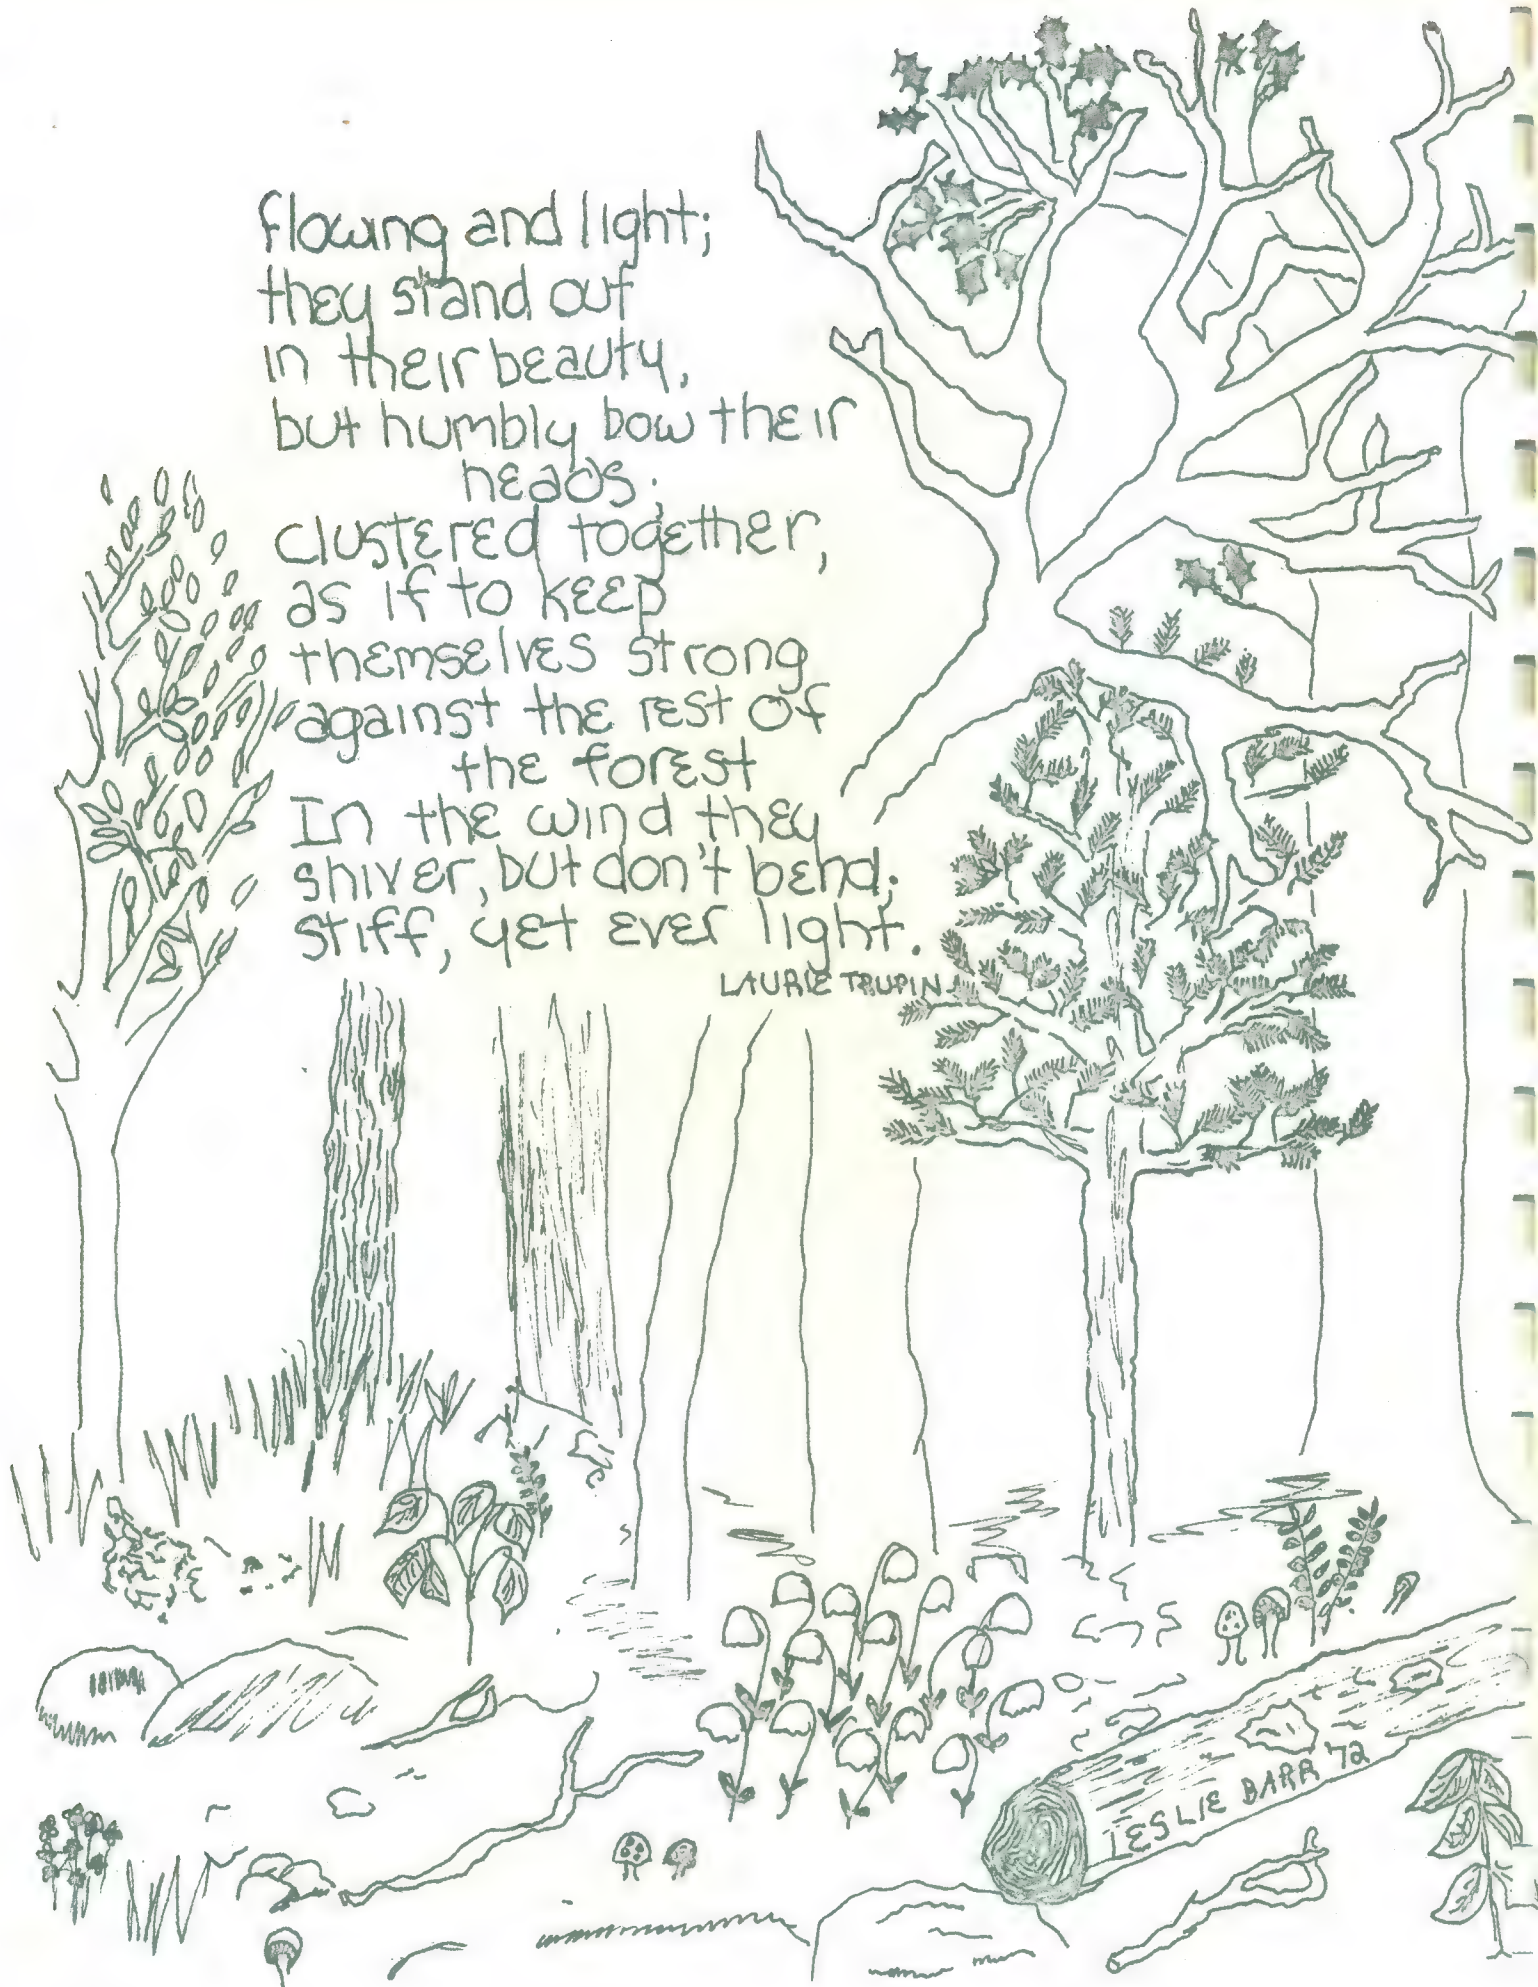 flowing and light;
they stand out
in their beauty,
but humbly bow their
heads;
clustered together,
as if to keep
themselves strong
against the rest of
the forest
In the wind they
shiver, but don't bend;
stiff, yet ever light.
LAURIE TRUPIN
LESLIE BARR '72